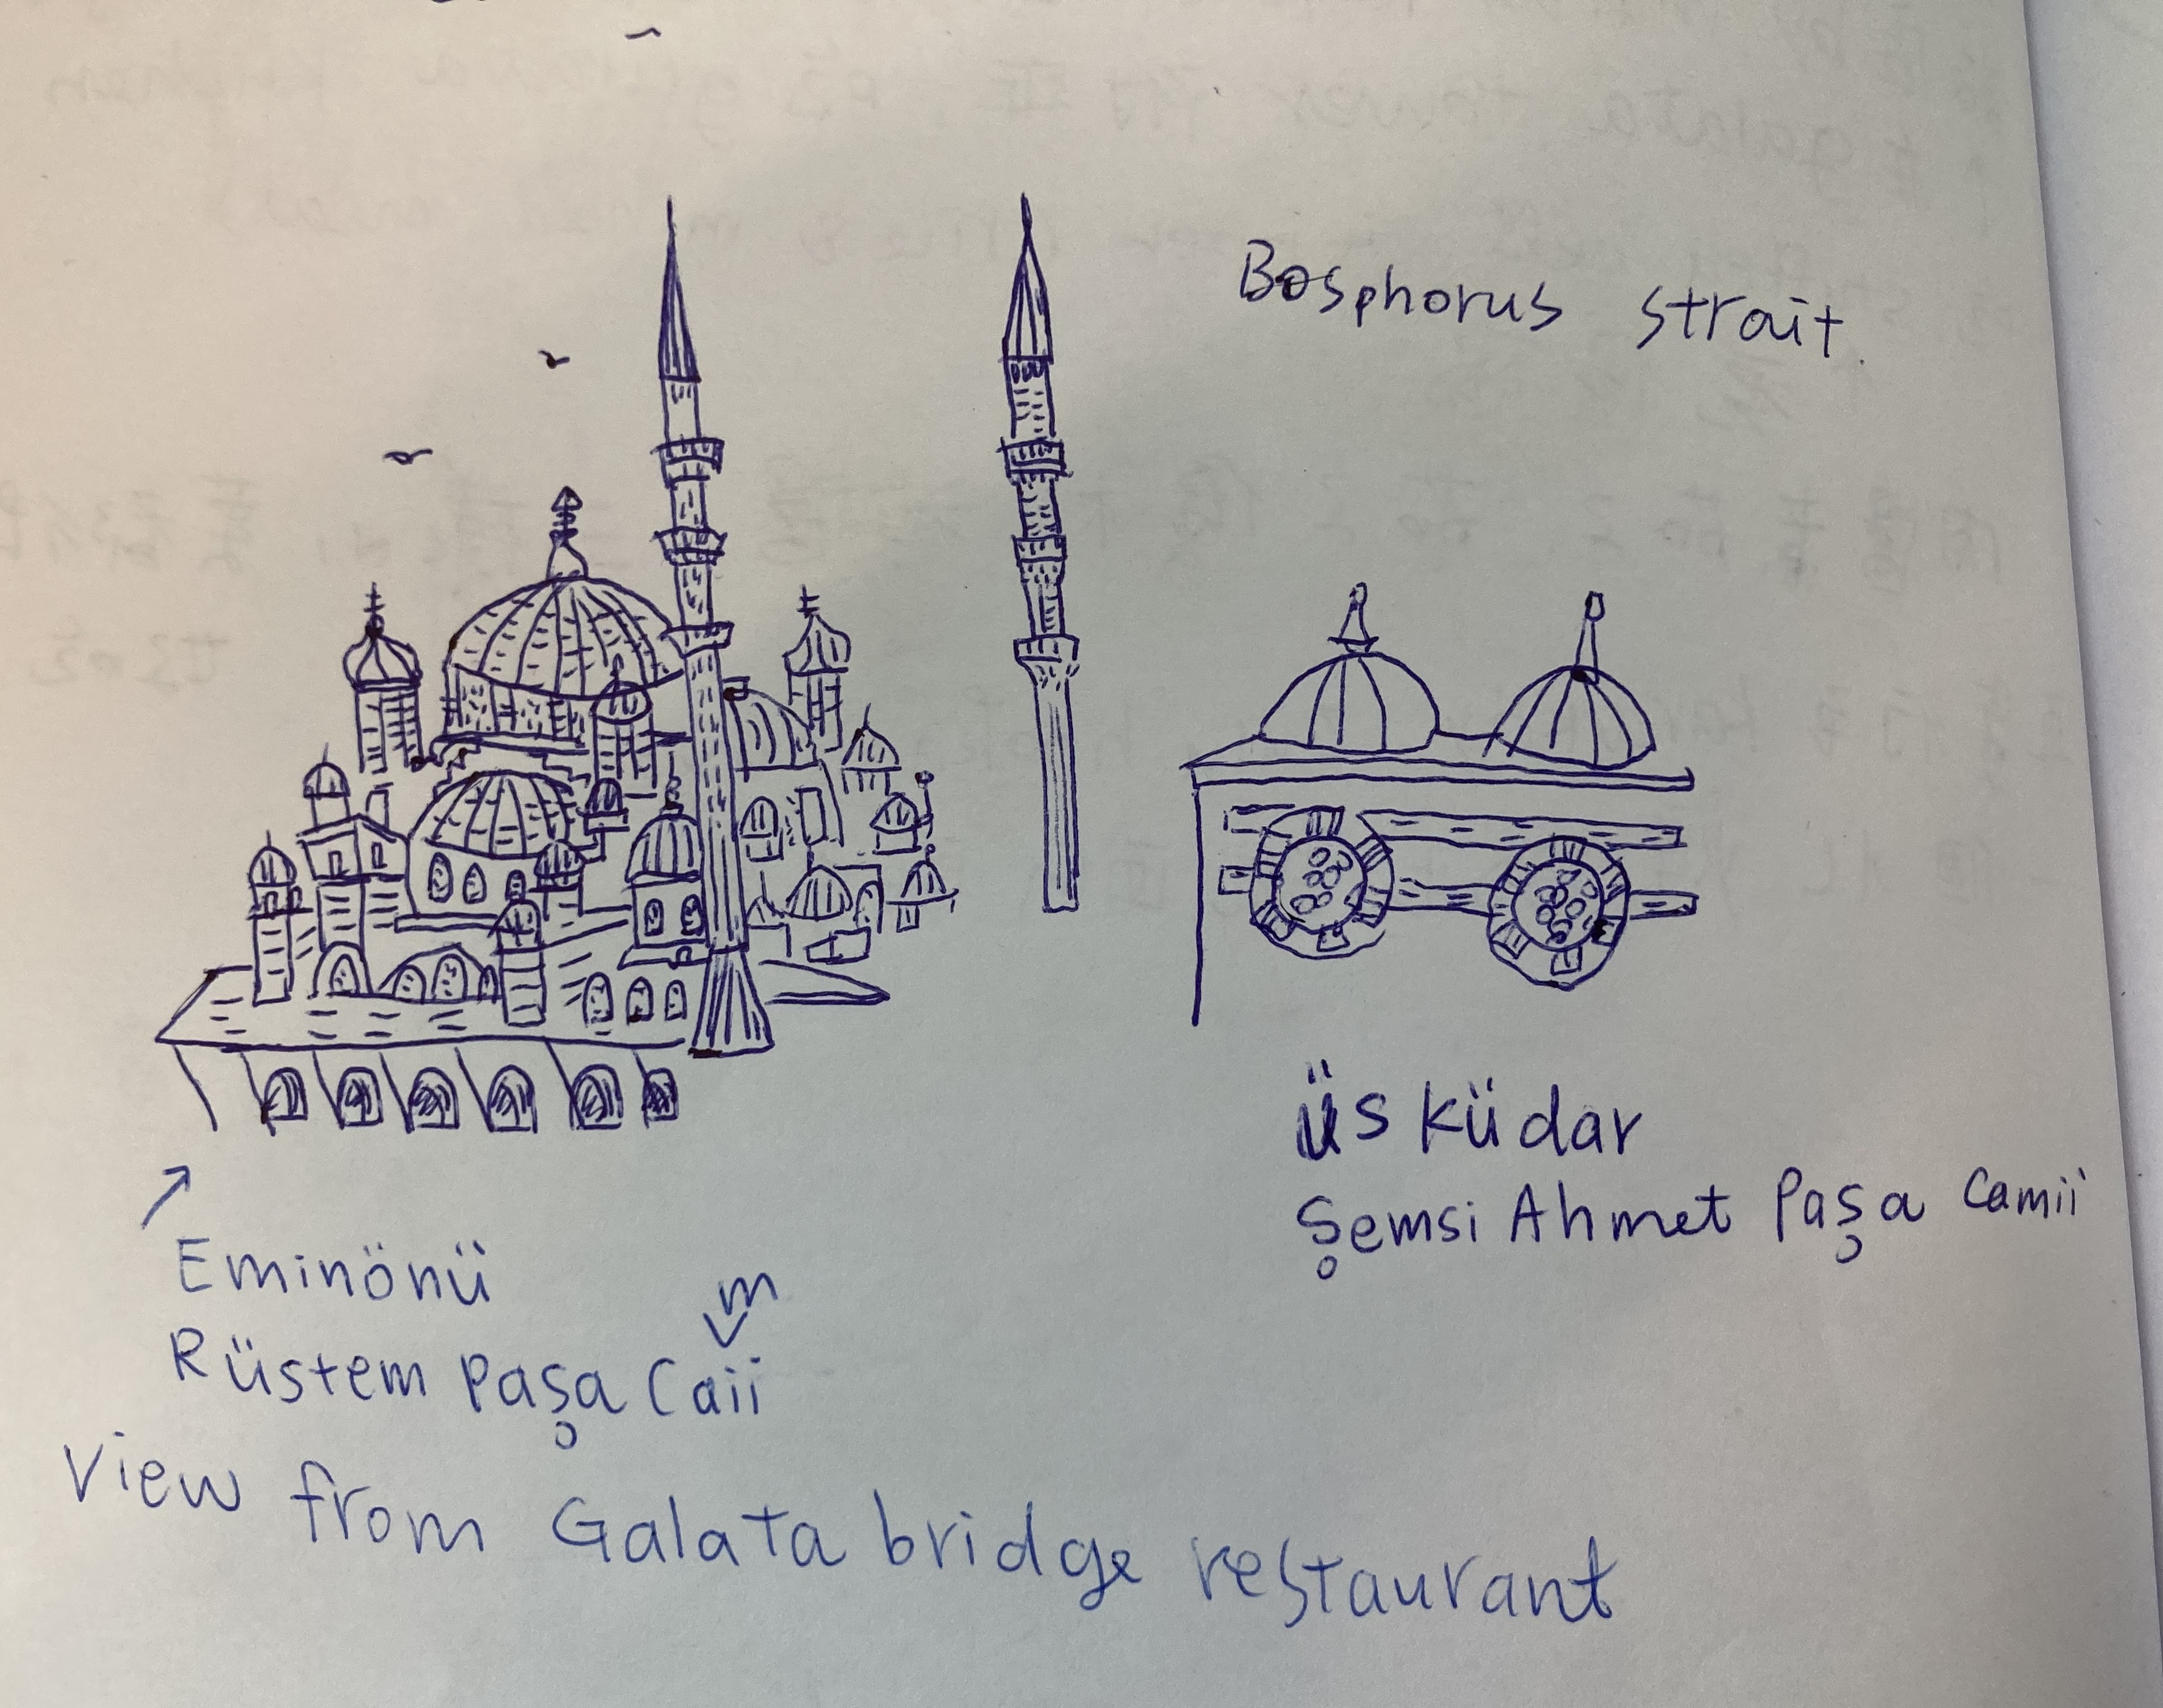 Bosphorus strait.
üsküdar
Şemsi Ahmet Paşa Camii
Eminönü
m
Rüstem Paşa Caii
View from Galata bridge restaurant